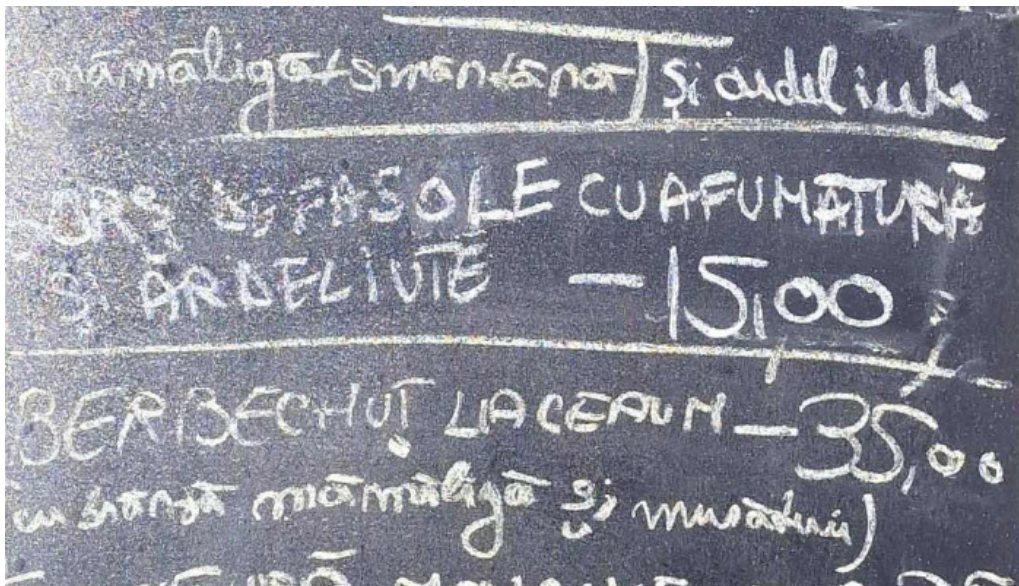 mămăligă+smântână) și ardei iute
ORȘ DE FASOLE CU AFUMĂTURĂ
ȘI ARDEL IUTE - 15,00
BERBECHUȚ LA CEAUN - 35,00
cu brânză mămăligă și murături)